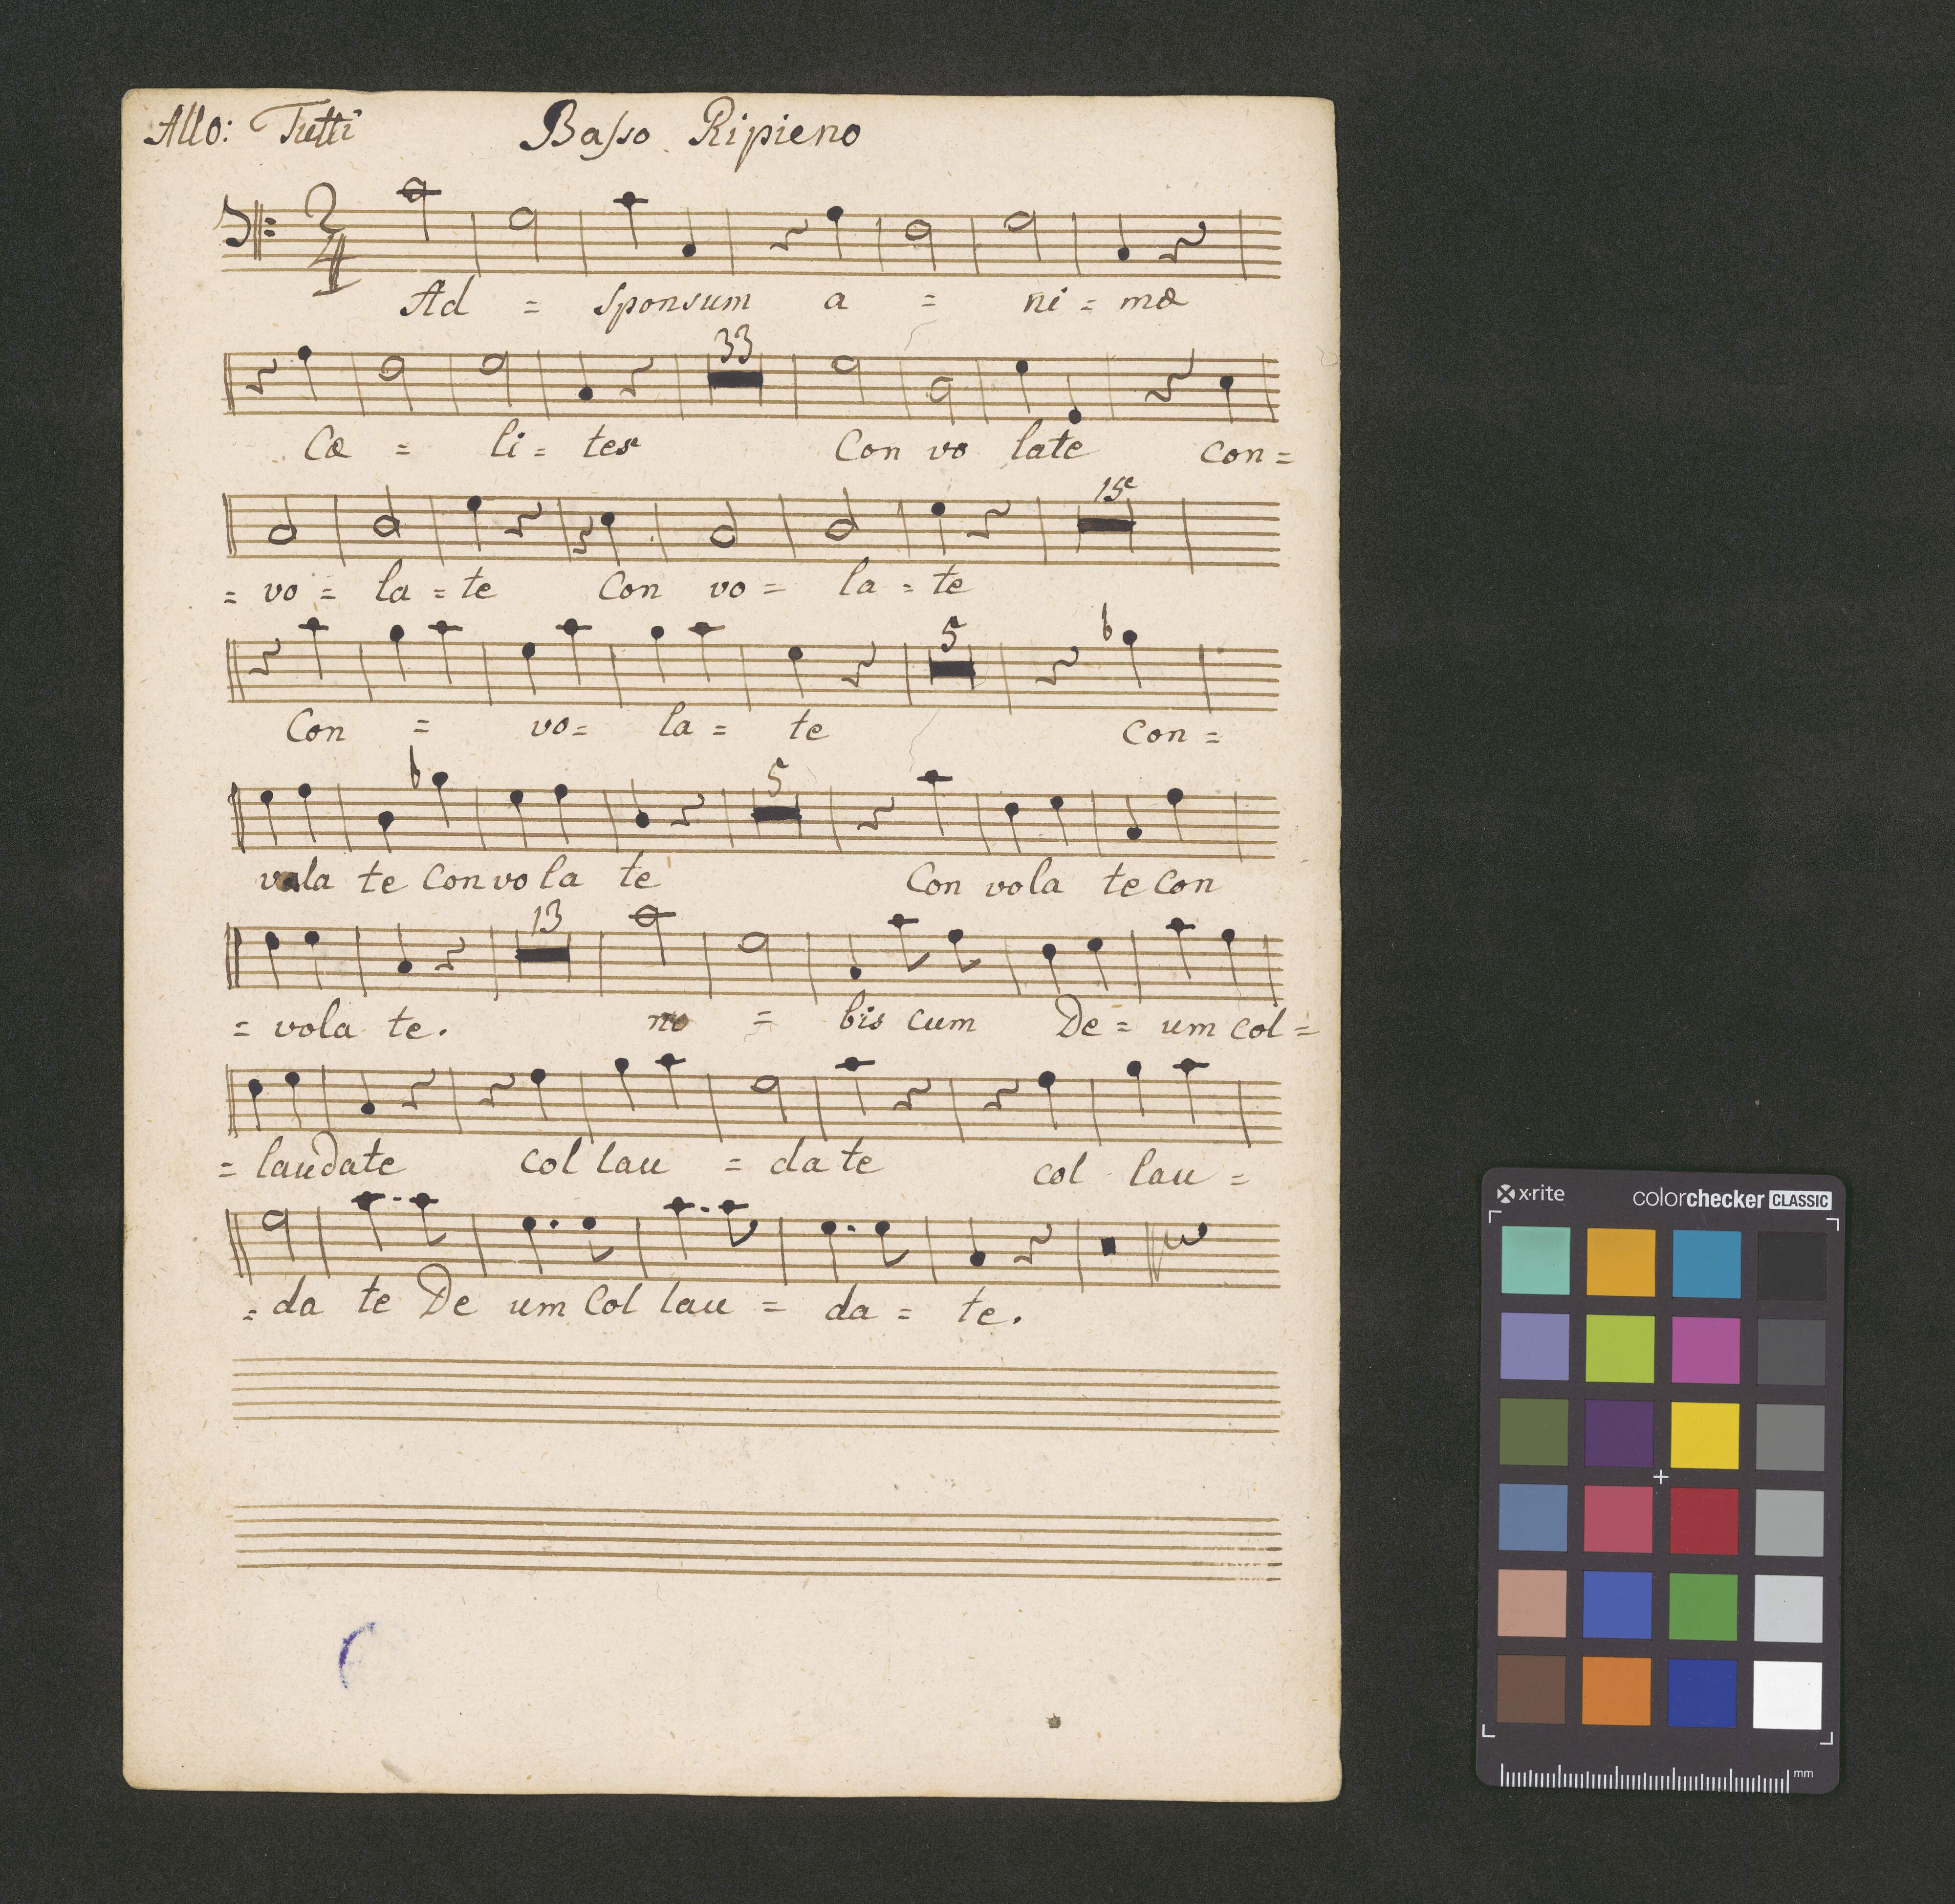 Allo: Tutti Basso Ripieno
2
4
Ad = sponsum a = ni = mæ
33
Cæ = li = tes Con vo late con =
15
= vo = la = te Con vo = la = te
5
Con = vo = la = te con =
5
vola te Con vo la te Con vola te Con
13
= vola te. no = bis cum De = um col =
= laudate col lau = da te col lau =
= da te De um Col lau = da = te.
x·rite colorchecker CLASSIC
mm